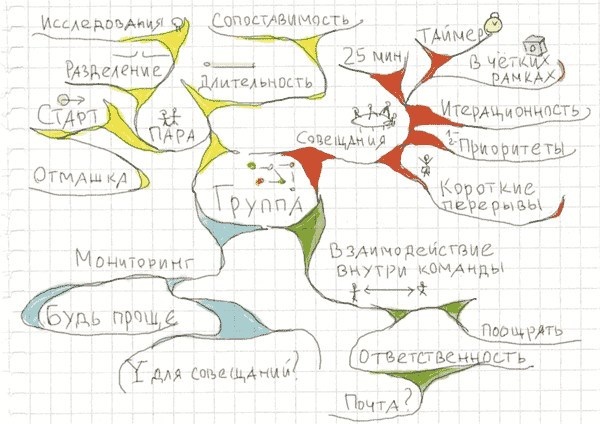 Исследования
Сопоставимость
Таймер
25 мин
В чётких
рамках
Разделение
Длительность
Старт
Пара
Совещания
Итерационность
1-
2-
Приоритеты
Отмашка
Группа
Короткие
перерывы
Мониторинг
Взаимодействие
внутри команды
Будь проще
Поощрять
Ответственность
Y для совещаний?
Почта?